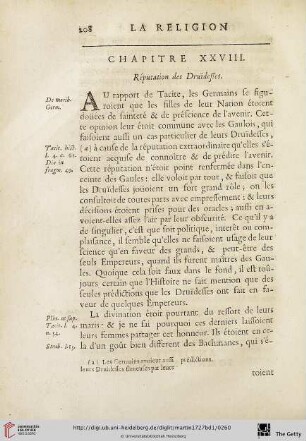 208 LA RELIGION
CHAPITRE XXVIII.
Réputation des Druidesses.
De morib.
Germ.
AU rapport de Tacite, les Germains se figu-
roient que les filles de leur Nation étoient
douées de sainteté & de prescience de l'avenir. Cet-
te opinion leur étoit commune avec les Gaulois, qui
faisoient aussi un cas particulier de leurs Druidesses,
Tacit. hist.
l. 4. n. 61.
Dio in
fragm. 49.
(a) à cause de la réputation extraordinaire qu'elles s'é-
toient acquise de connoître & de prédite l'avenir.
Cette réputation n'étoit point renfermée dans l'en-
ceinte des Gaules: elle voloit par tout, & faisoit que
les Druidesses jouoient un fort grand rôle; on les
consultoit de toutes parts avec empressement; & leurs
décisions étoient prises pour des oracles; aussi en a-
voient-elles assez l'air par leur obscurité. Ce qu'il y a
de singulier, c'est que soit politique, intérêt, ou com-
plaisance, il semble qu'elles ne faisoient usage de leur
science qu'en faveur des grands, & peut-être des
seuls Empereurs, quand ils furent maîtres des Gau-
les. Quoique cela soit faux dans le fond, il est toû-
jours certain que l'Histoire ne fait mention que des
seules prédictions que les Druidesses ont fait en fa-
veur de quelques Empereurs.
La divination étoit pourtant du ressort de leurs
maris: & je ne sai pourquoi ces derniers laissoient
leurs femmes partager cet honneur. Ils étoient en ce-
Strab. l. 4.
la d'un goût bien différent des Bachinanes, qui s'é-
(a) Les Germains avoient aussi
leurs Druidesses fameuses par leurs
prédictions.
toient
http://digi.ub.uni-heidelberg.de/diglit/martin1727bd1/0260
© Universitätsbibliothek Heidelberg
UNIVERSITÄTS-
BIBLIOTHEK
HEIDELBERG
The Getty